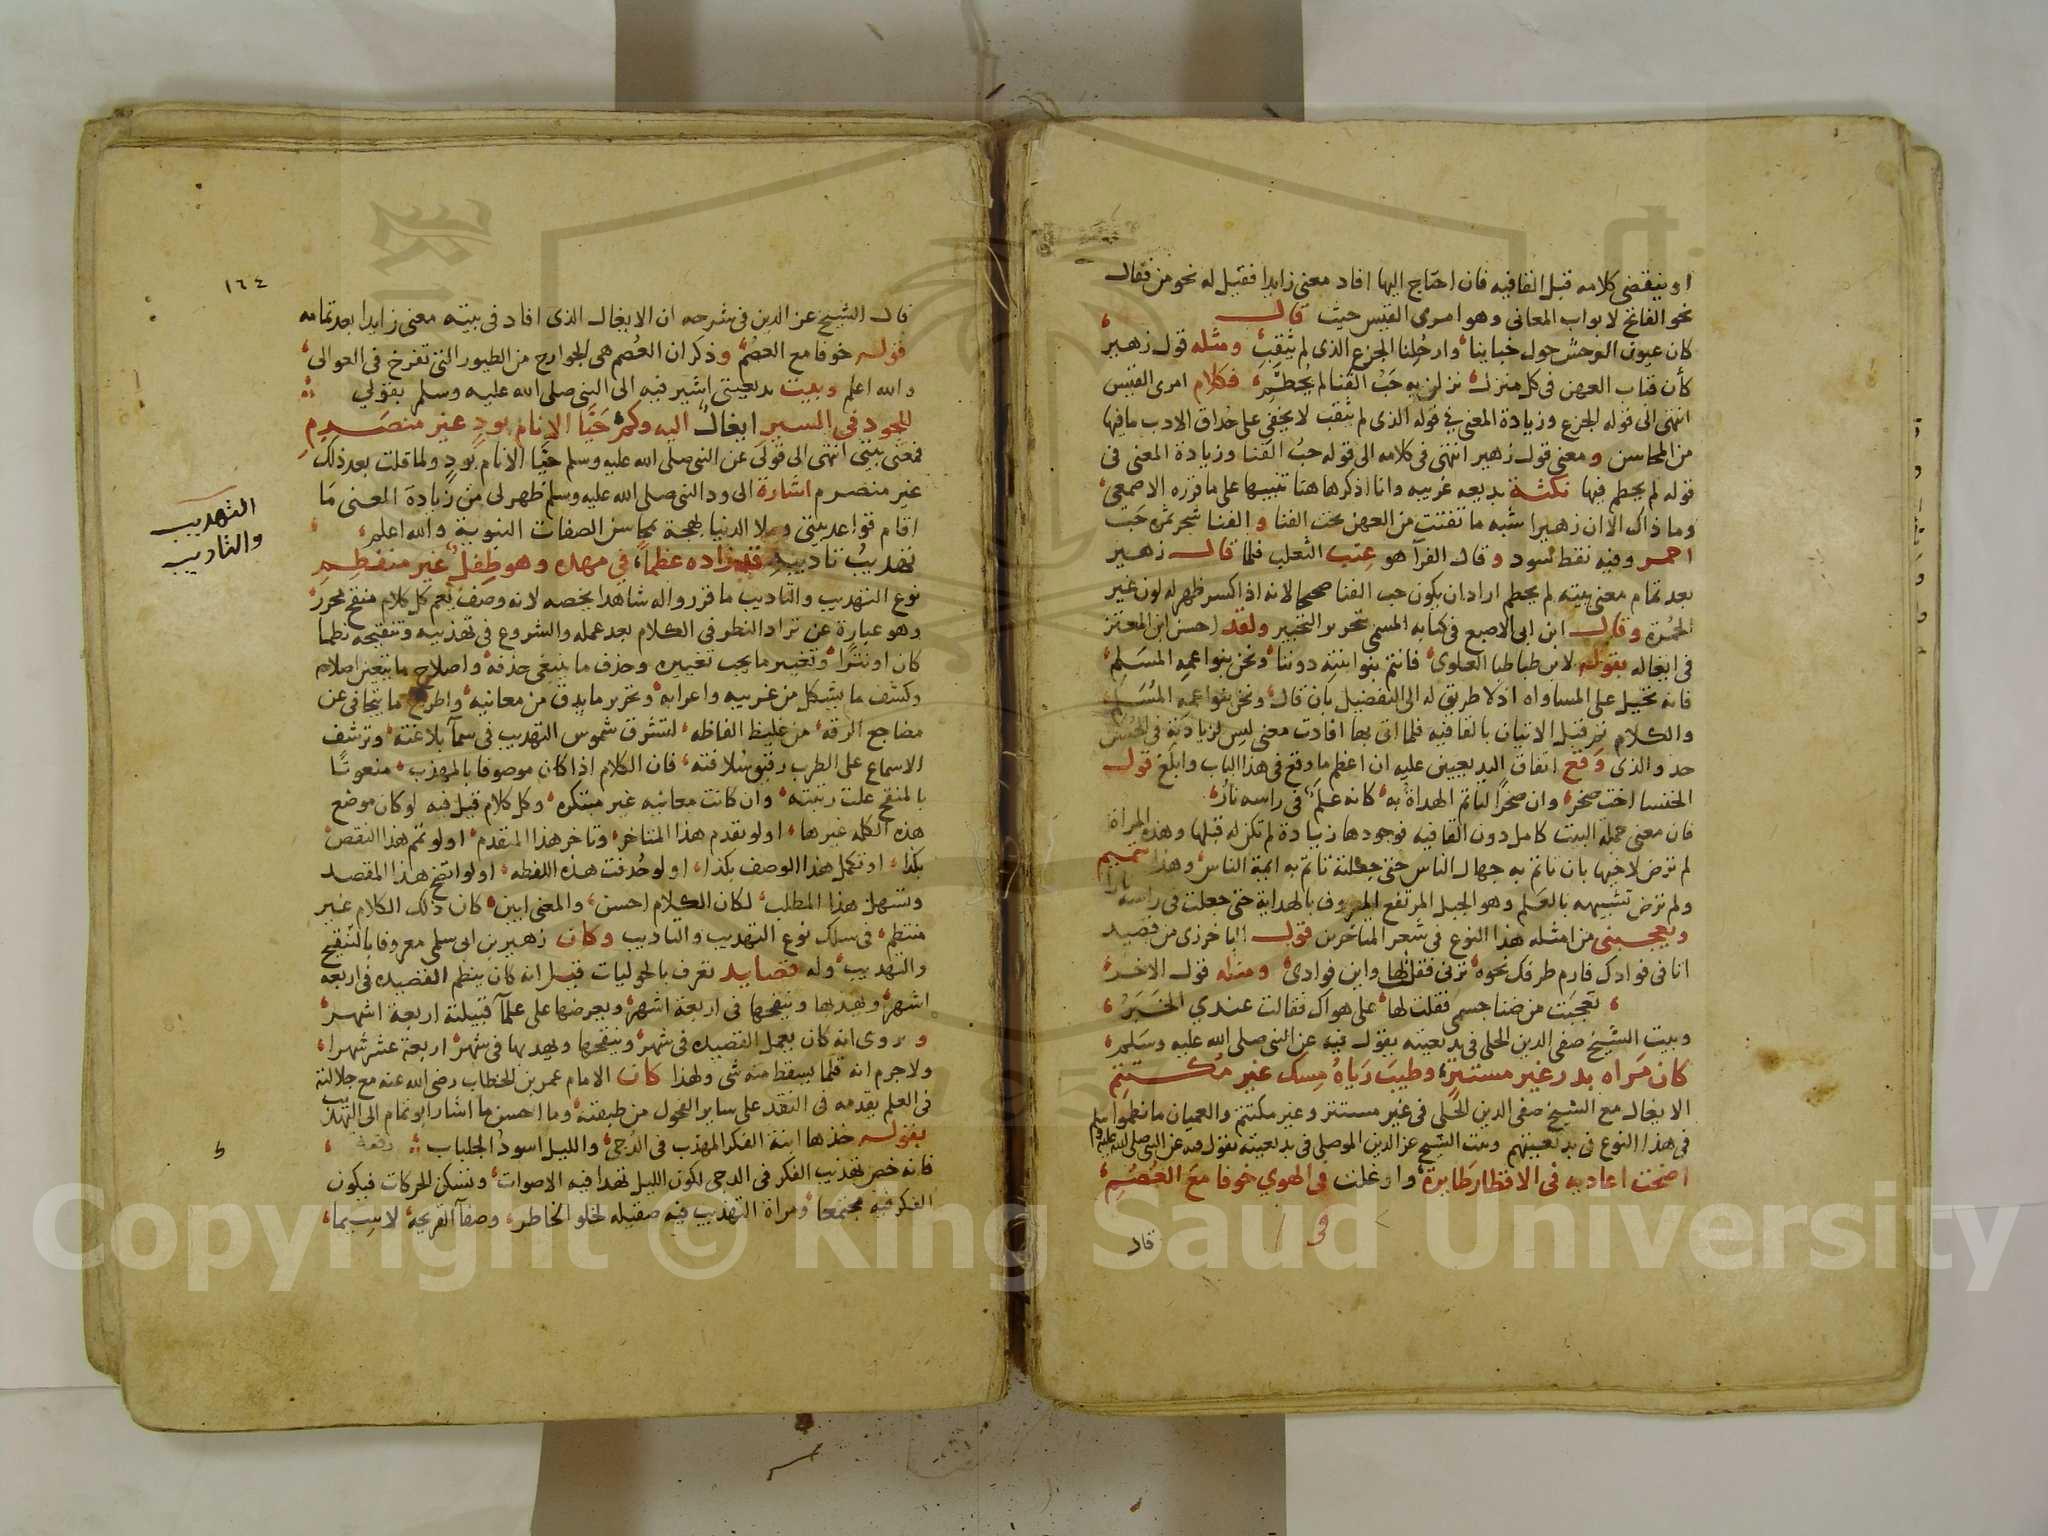 او ينقضى كلامه قبل القافيه فان احتاج اليها افاد معنى زايدا فقيل له نحو من فقال
نحو الفاتح لابواب المعانى وهو امرى القيس حيث قال
كان عيون الوحش حول خباينا وارحلنا الجزع الذى لم يثقب ومثله قول زهير
كأن فتات العهن فى كل منزل نزلن به حب الفنا لم يحطم فكلام امرى القيس
انتهى الى قوله الجزع وزيادة المعنى في قوله الذى لم يثقب لا يخفى على حذاق الادب ما فيها
من المحاسن ومعنى قول زهير انتهى فى كلامه الى قوله حب الفنا وزيادة المعنى فى
قوله لم يحطم فيها نكتة بديعه غريبه وانا اذكرها هنا تنبيها على ما قرره الاصمعى
وما ذاك الا ان زهيرا شبه ما تفتت من العهن بحب الفنا والفنا شجر ثمره حب
احمر وفيه نقط سود وقال الفرآ هو عنب الثعلب فلما قال زهير
بعد تمام معنى بيته لم يحطم اراد ان يكون حب الفنا صحيحا لانه اذا كسر ظهر له لون غير
الحمرة وقال ابن ابى الاصبع فى كتابه المسمى بتحرير التحبير ولقد احسن ابن المعتز
فى ايغاله بقوله لابن طباطبا العلوى فانتم بنو ابنته دوننا ونحن بنو اعمه المسلم
فانه تحيل على المساواه اذ لا طريق له الى التفضيل بأن قال ونحن بنو اعمه المسلم
والكلام تم قبل الاتيان بالقافيه فلما اتى بها افادت معنى ليس لزيادته فى الحسن
حد والذى وقع اتفاق البديعيين عليه ان اعظم ما وقع فى هذا الباب وابلغ قول
الخنسا اخت صخر وان صخرا لتاتم الهداة به كانه علم فى راسه نار
فان معنى جملة البيت كامل دون القافيه فوجودها زيادة لم تكن له قبلها وهذه المراة
لم ترض لاخيها بان ياتم به جهال الناس حتى جعلته تاتم به ايمة الناس وهذا تتميم
ولم ترض تشبيهه بالعلم وهو الجبل المرتفع المعروف بالهداية حتى جعلت فى راسه نارا
ويعجبنى من امثله هذا النوع فى شعر المتاخرين قول الباخرزى من قصيد
انا فى فوادك فارم طرفك نحوه ترنى فقلت لها واين فوادى ومثله قول الاخر
تعجبت من ضنا جسمى فقلت لها على هواك فقالت عندي الخبر
وبيت الشيخ صفى الدين الحلى فى بديعيته يقول فيه عن النبى صلى الله عليه وسلم
كان مراه بدر غير مستتر وطيب رياه مسك غير مكتتم
الايغال مع الشيخ صفى الدين الحلى فى غير مستتر وغير مكتتم والعميان ما نظموا
فى هذا النوع فى بديعيتهم وبيت الشيخ عز الدين الموصلى فى بديعيته يقول فيه عن النبى صلى الله عليه وسلم
اضحت اعاديه فى الاقطار طايرة واوغلت فى الهوي خوفا مع العصم
قال
١٦٤
قال الشيخ عز الدين فى شرحه ان الايغال الذى افاد فى بيته معنى زايدا بعد تمامه
قوله خوفا مع العصم وذكر ان العصم هى الجوارح من الطيور التى تفرخ فى العوالى
والله اعلم وبيت بديعيتى اشير فيه الى النبى صلى الله عليه وسلم بقولي
للجود فى السير ايغال اليه وكم حبا الانام بود غير منصرم
فمعنى بيتى انتهى الى قولى عن النبى صلى الله عليه وسلم حبا الانام بود ولما قلت بعد ذلك
غير منصرم اشارة الى ود النبى صلى الله عليه وسلم ظهر لى من زيادة المعنى ما
اقام قواعد بيتى وملا الدنيا بهجة بمحاسن الصفات النبوية والله اعلم
التهديب
والتاديب
تهذيب تاديبه قد زاده عظما فى مهده وهو طفل غير منفطم
نوع التهديب والتاديب ما قرروا له شاهدا يخصه لانه وصف يعم كل كلام منقح محرر
وهو عبارة عن ترداد النظر فى الكلام بعد عمله والشروع فى تهذيبه وتنقيحه نظما
كان او نثرا وتغيير ما يجب تغييره وحذف ما ينبغى حذفه واصلاح ما يتعين اصلاح
وكشف ما يشكل من غريبه واعرابه وتحرير ما يدق من معانيه واطراح ما يتجافى عن
مضاجع الرقه من غليظ الفاظه لتشرق شموس التهديب فى سمآ بلاغته وترشف
الاسماع على الطرب رقيق سلافته فان الكلام اذا كان موصوفا بالمهذب منعوتا
بالمنقح علت رتبته وان كانت معانيه غير مبتكره وكل كلام قيل فيه لو كان موضع
هذه الكلمه غيرها او لو تقدم هذا المتاخر وتاخر هذا المتقدم او لو تمم هذا النقص
بكذا او تكمل هذا الوصف بكذا او لو حذفت هذه اللفظه او لو اتضح هذا المقصد
وتسهل هذا المطلب لكان الكلام احسن والمعنى ابين كان ذلك الكلام غير
منتظم فى سلك نوع التهديب والتاديب وكان زهير بن ابى سلمى معروفا بالتنقيح
والتهديب وله قصايد تعرف بالحوليات قيل انه كان ينظم القصيده فى اربعه
اشهر ويهدبها وينقحها فى اربعة اشهر ويعرضها على علمآ قبيلته اربعة اشهر
وروى انه كان يعمل القصيده فى شهر وينقحها ويهدبها فى شهر اربعة عشر شهرا
ولا جرم انه قلما يسقط منه شى ولهذا كان الامام عمر بن الخطاب رضى الله عنه مع جلالته
فى العلم يقدمه فى النقد على ساير الفحول من طبقته وما احسن ما اشار ابو تمام الى التهديب
بقوله خذها ابنة الفكر المهذب فى الدجى والليل اسود الجلباب رقعة
فانه خص تهذيب الفكر فى الدجى لكون الليل تهدا فيه الاصوات وتسكن الحركات فيكون
الفكر فيه مجتمعا ومراة التهذيب فيه صقيله لخلو الخاطر وصفآ القريحه لا سيما
Copyright © King Saud University